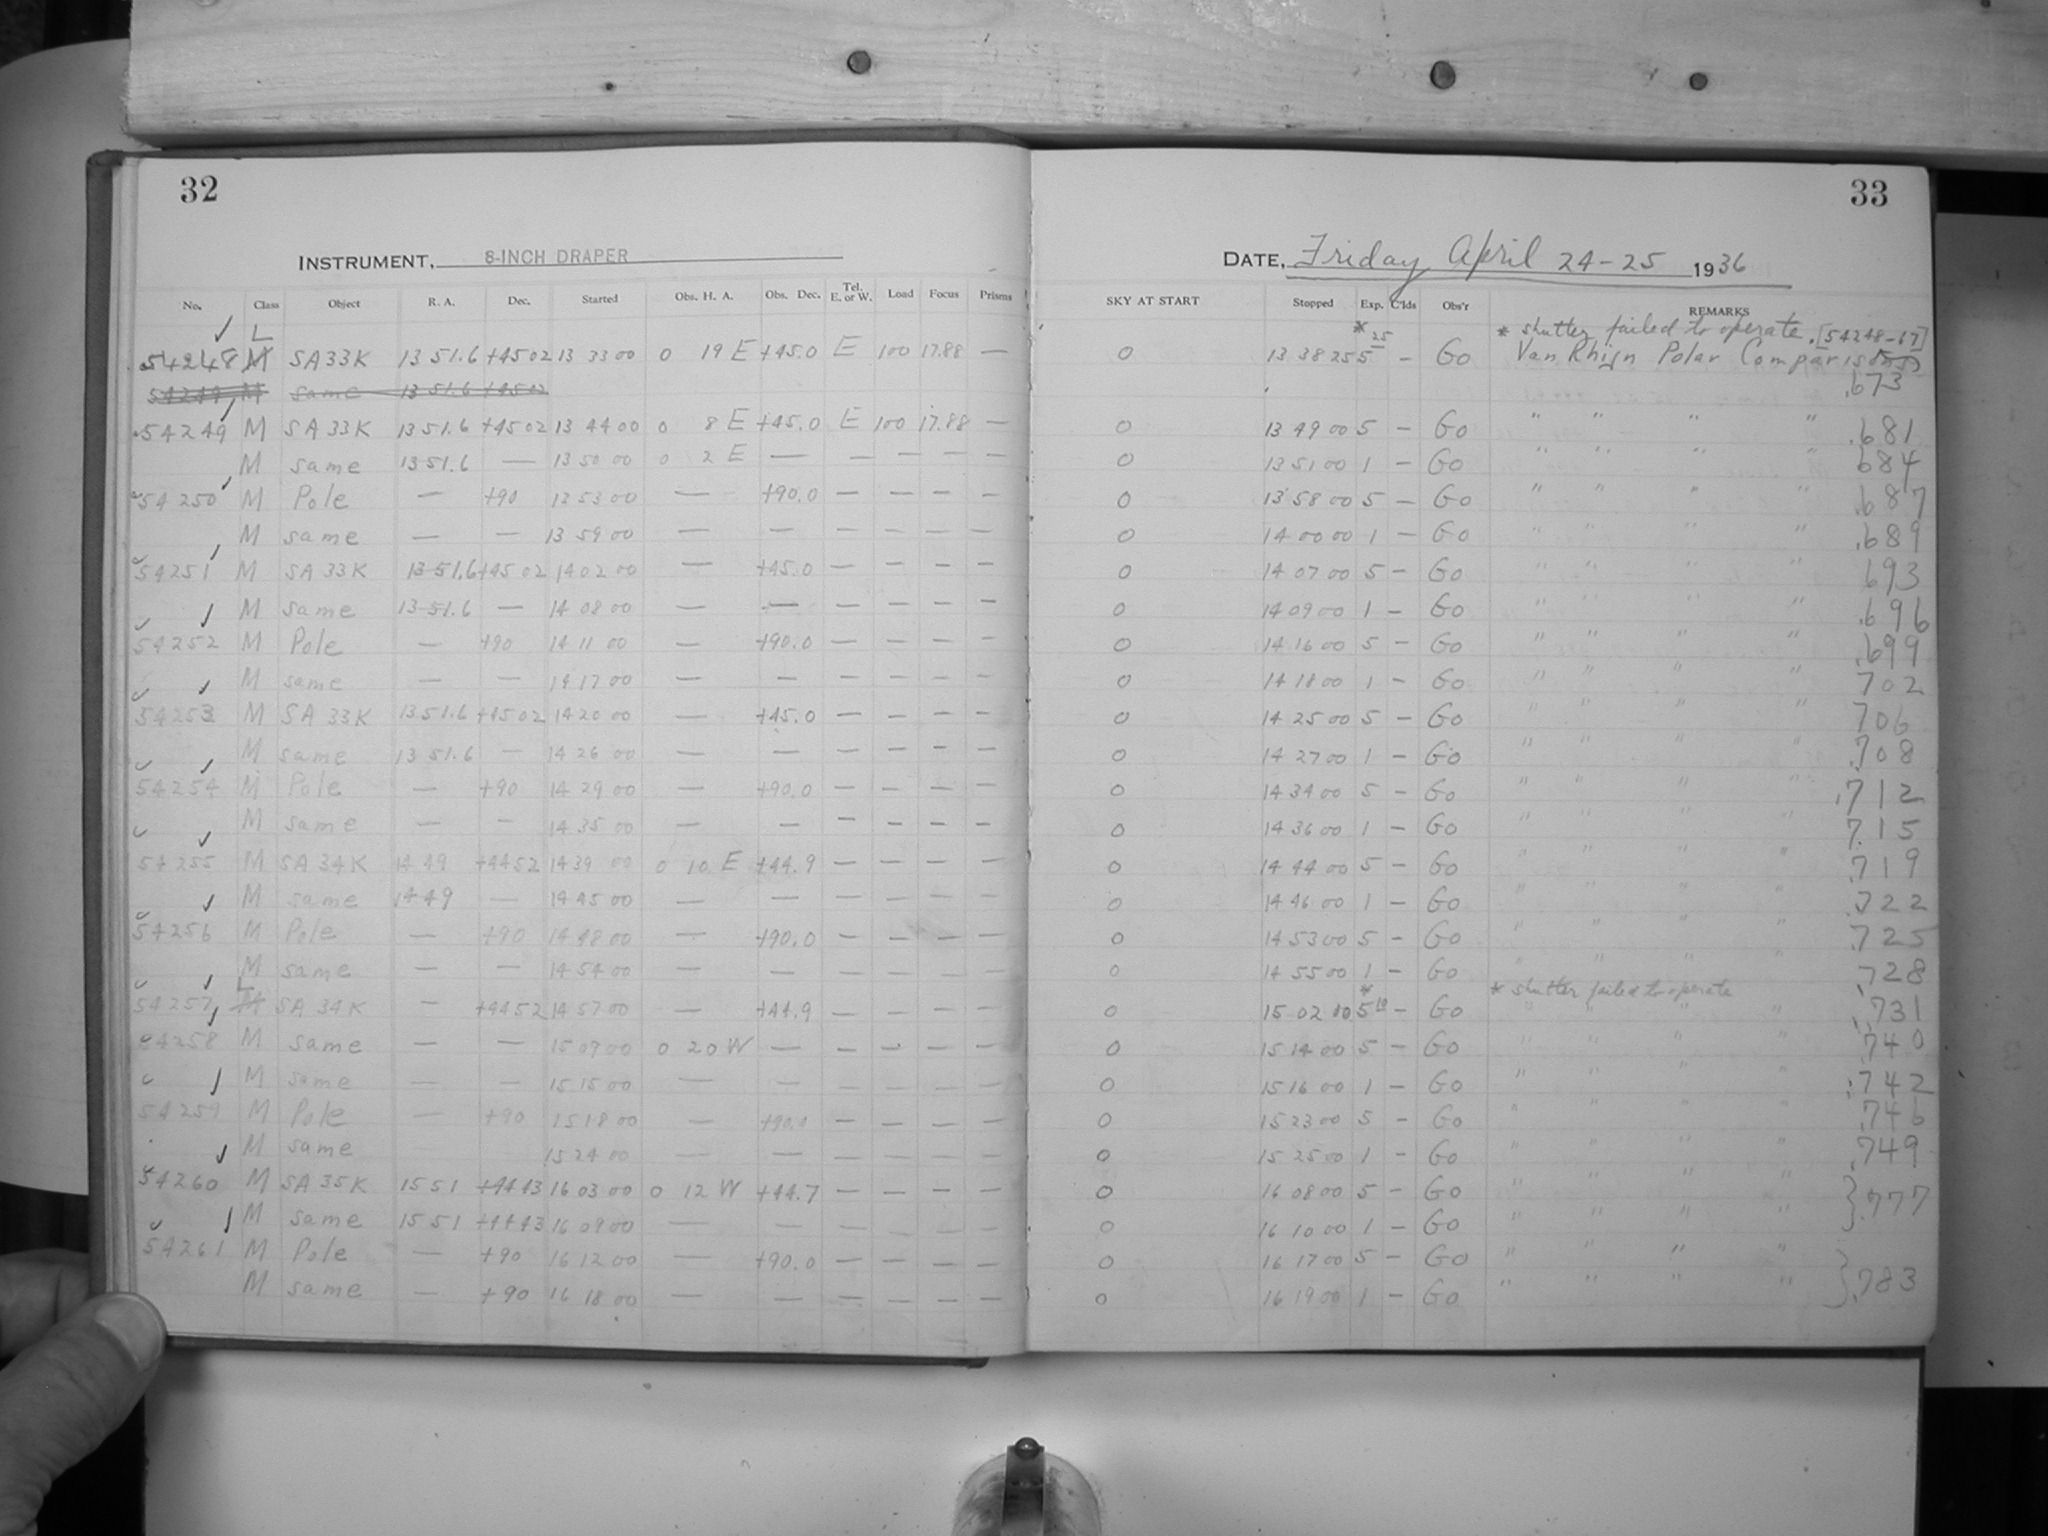 32
33
INSTRUMENT, 8-INCH DRAPER
DATE, Friday April 24-25 1936
No. Class Object R. A. Dec. Started Obs. H. A. Obs. Dec. Tel. E. or W. Load Focus Prisms SKY AT START Stopped Exp. C'lds Obs'r REMARKS
L * 25 * shutter failed to operate. [54248-67]
54248 M SA33K 13 51.6 +45 02 13 33 00 0 19 E +45.0 E 100 17.88 — 0 13 38 25 5 — Go Van Rhijn Polar Comparisons
54249 M same 13 51.6 +45 02 .673
54249 M SA 33K 13 51.6 +45 02 13 44 00 0 8 E +45.0 E 100 17.88 — 0 13 49 00 5 — Go " " " " .681
M same 13 51.6 — 13 50 00 0 2 E — — — — — 0 13 51 00 1 — Go " " " " .684
54250 M Pole — +90 13 53 00 — +90.0 — — — — 0 13 58 00 5 — Go " " " " .687
M same — — 13 59 00 — — — — — — 0 14 00 00 1 — Go " " " " .689
54251 M SA 33K 13 51.6 +45 02 14 02 00 — +45.0 — — — — 0 14 07 00 5 — Go " " " " .693
M same 13 51.6 — 14 08 00 — — — — — — 0 14 09 00 1 — Go " " " " .696
54252 M Pole — +90 14 11 00 — +90.0 — — — — 0 14 16 00 5 — Go " " " " .699
M same — — 14 17 00 — — — — — — 0 14 18 00 1 — Go " " " " 702
54253 M SA 33K 13 51.6 +45 02 14 20 00 — +45.0 — — — — 0 14 25 00 5 — Go " " " " 706
M same 13 51.6 — 14 26 00 — — — — — — 0 14 27 00 1 — Go " " " " .708
54254 M Pole — +90 14 29 00 — +90.0 — — — — 0 14 34 00 5 — Go " " " " .712
M same — — 14 35 00 — — — — — — 0 14 36 00 1 — Go " " " " .715
54255 M SA 34K 14 49 +44 52 14 39 00 0 10 E +44.9 — — — — 0 14 44 00 5 — Go " " " " .719
M same 14 49 — 14 45 00 — — — — — — 0 14 46 00 1 — Go " " " " .722
54256 M Pole — +90 14 48 00 — +90.0 — — — — 0 14 53 00 5 — Go " " " " .725
M same — — 14 54 00 — — — — — — 0 14 55 00 1 — Go " " " " .728
L * * shutter failed to operate
54257 M SA 34K — +44 52 14 57 00 — +44.9 — — — — 0 15 02 10 5 10 — Go " " " " .731
54258 M same — — 15 09 00 0 20 W — — — — — 0 15 14 00 5 — Go " " " " .740
M same — — 15 15 00 — — — — — — 0 15 16 00 1 — Go " " " " .742
54259 M Pole — +90 15 18 00 — +90.0 — — — — 0 15 23 00 5 — Go " " " " .746
M same — — 15 24 00 — — — — — — 0 15 25 00 1 — Go " " " " .749
54260 M SA 35K 15 51 +44 43 16 03 00 0 12 W +44.7 — — — — 0 16 08 00 5 — Go " " " " } .777
M same 15 51 +44 43 16 09 00 — — — — — — 0 16 10 00 1 — Go " " " "
54261 M Pole — +90 16 12 00 — +90.0 — — — — 0 16 17 00 5 — Go " " " " } .783
M same — +90 16 18 00 — — — — — — 0 16 19 00 1 — Go " " " "